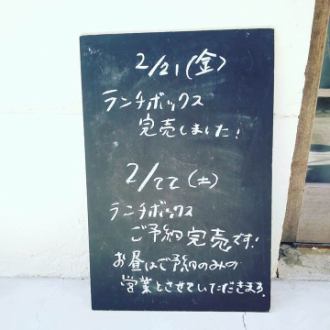 2/21(金)
ランチボックス
完売しました!
2/22(土)
ランチボックス
ご予約完売です!
お昼はご予約のみの
営業とさせていただきまス.